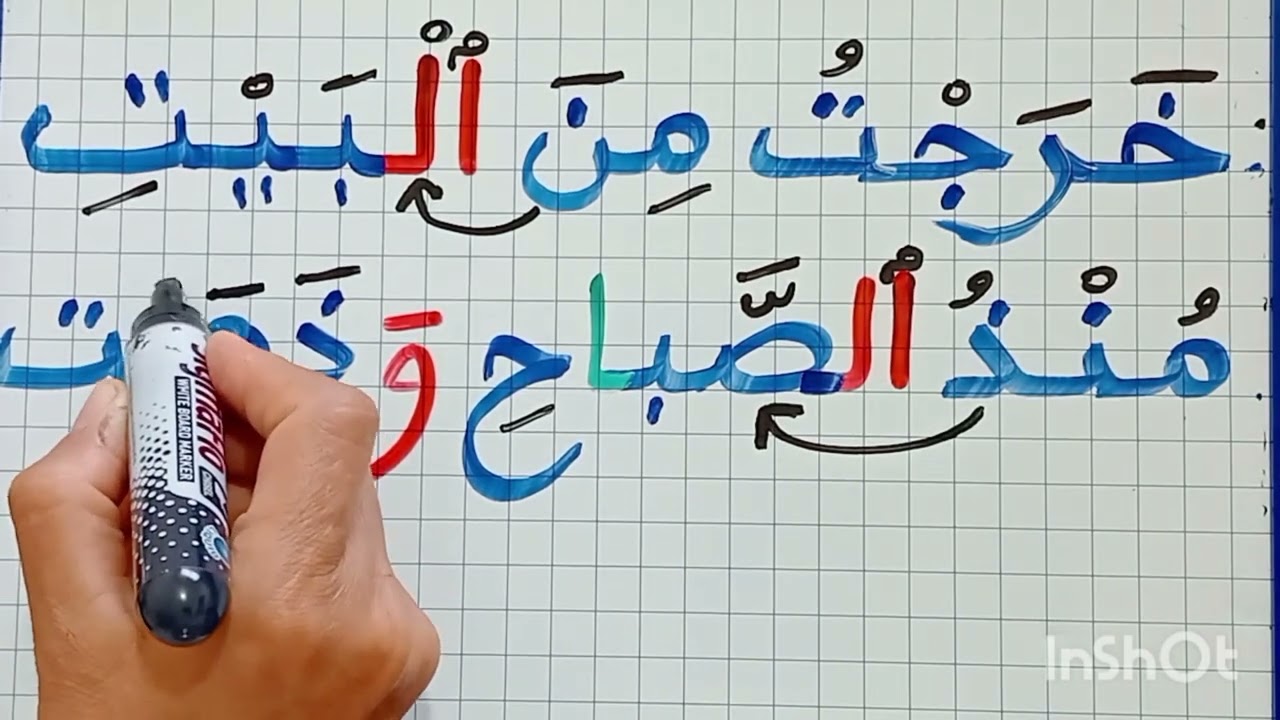 خَرَجْتُ مِنَ ٱلْبَيْتِ
مُنْذُ ٱلصَّباحِ وَ
WHITE BOARD MARKER
InShOt